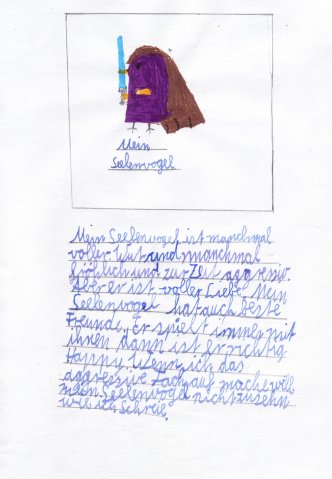 Mein
Seelenvogel
Mein Seelenvogel ist manchmal
voller Wut und manchmal
fröhlich und zur Zeit aggressiv.
Aber er ist voller Liebe. Mein
Seelenvogel hat auch beste
Freunde. Er spielt immer mit
ihnen dann ist er richtig
Happy. Wenn ich das
aggressive Fach auf mache will
mein Seelenvogel nicht zusehn
wie ich schreie.